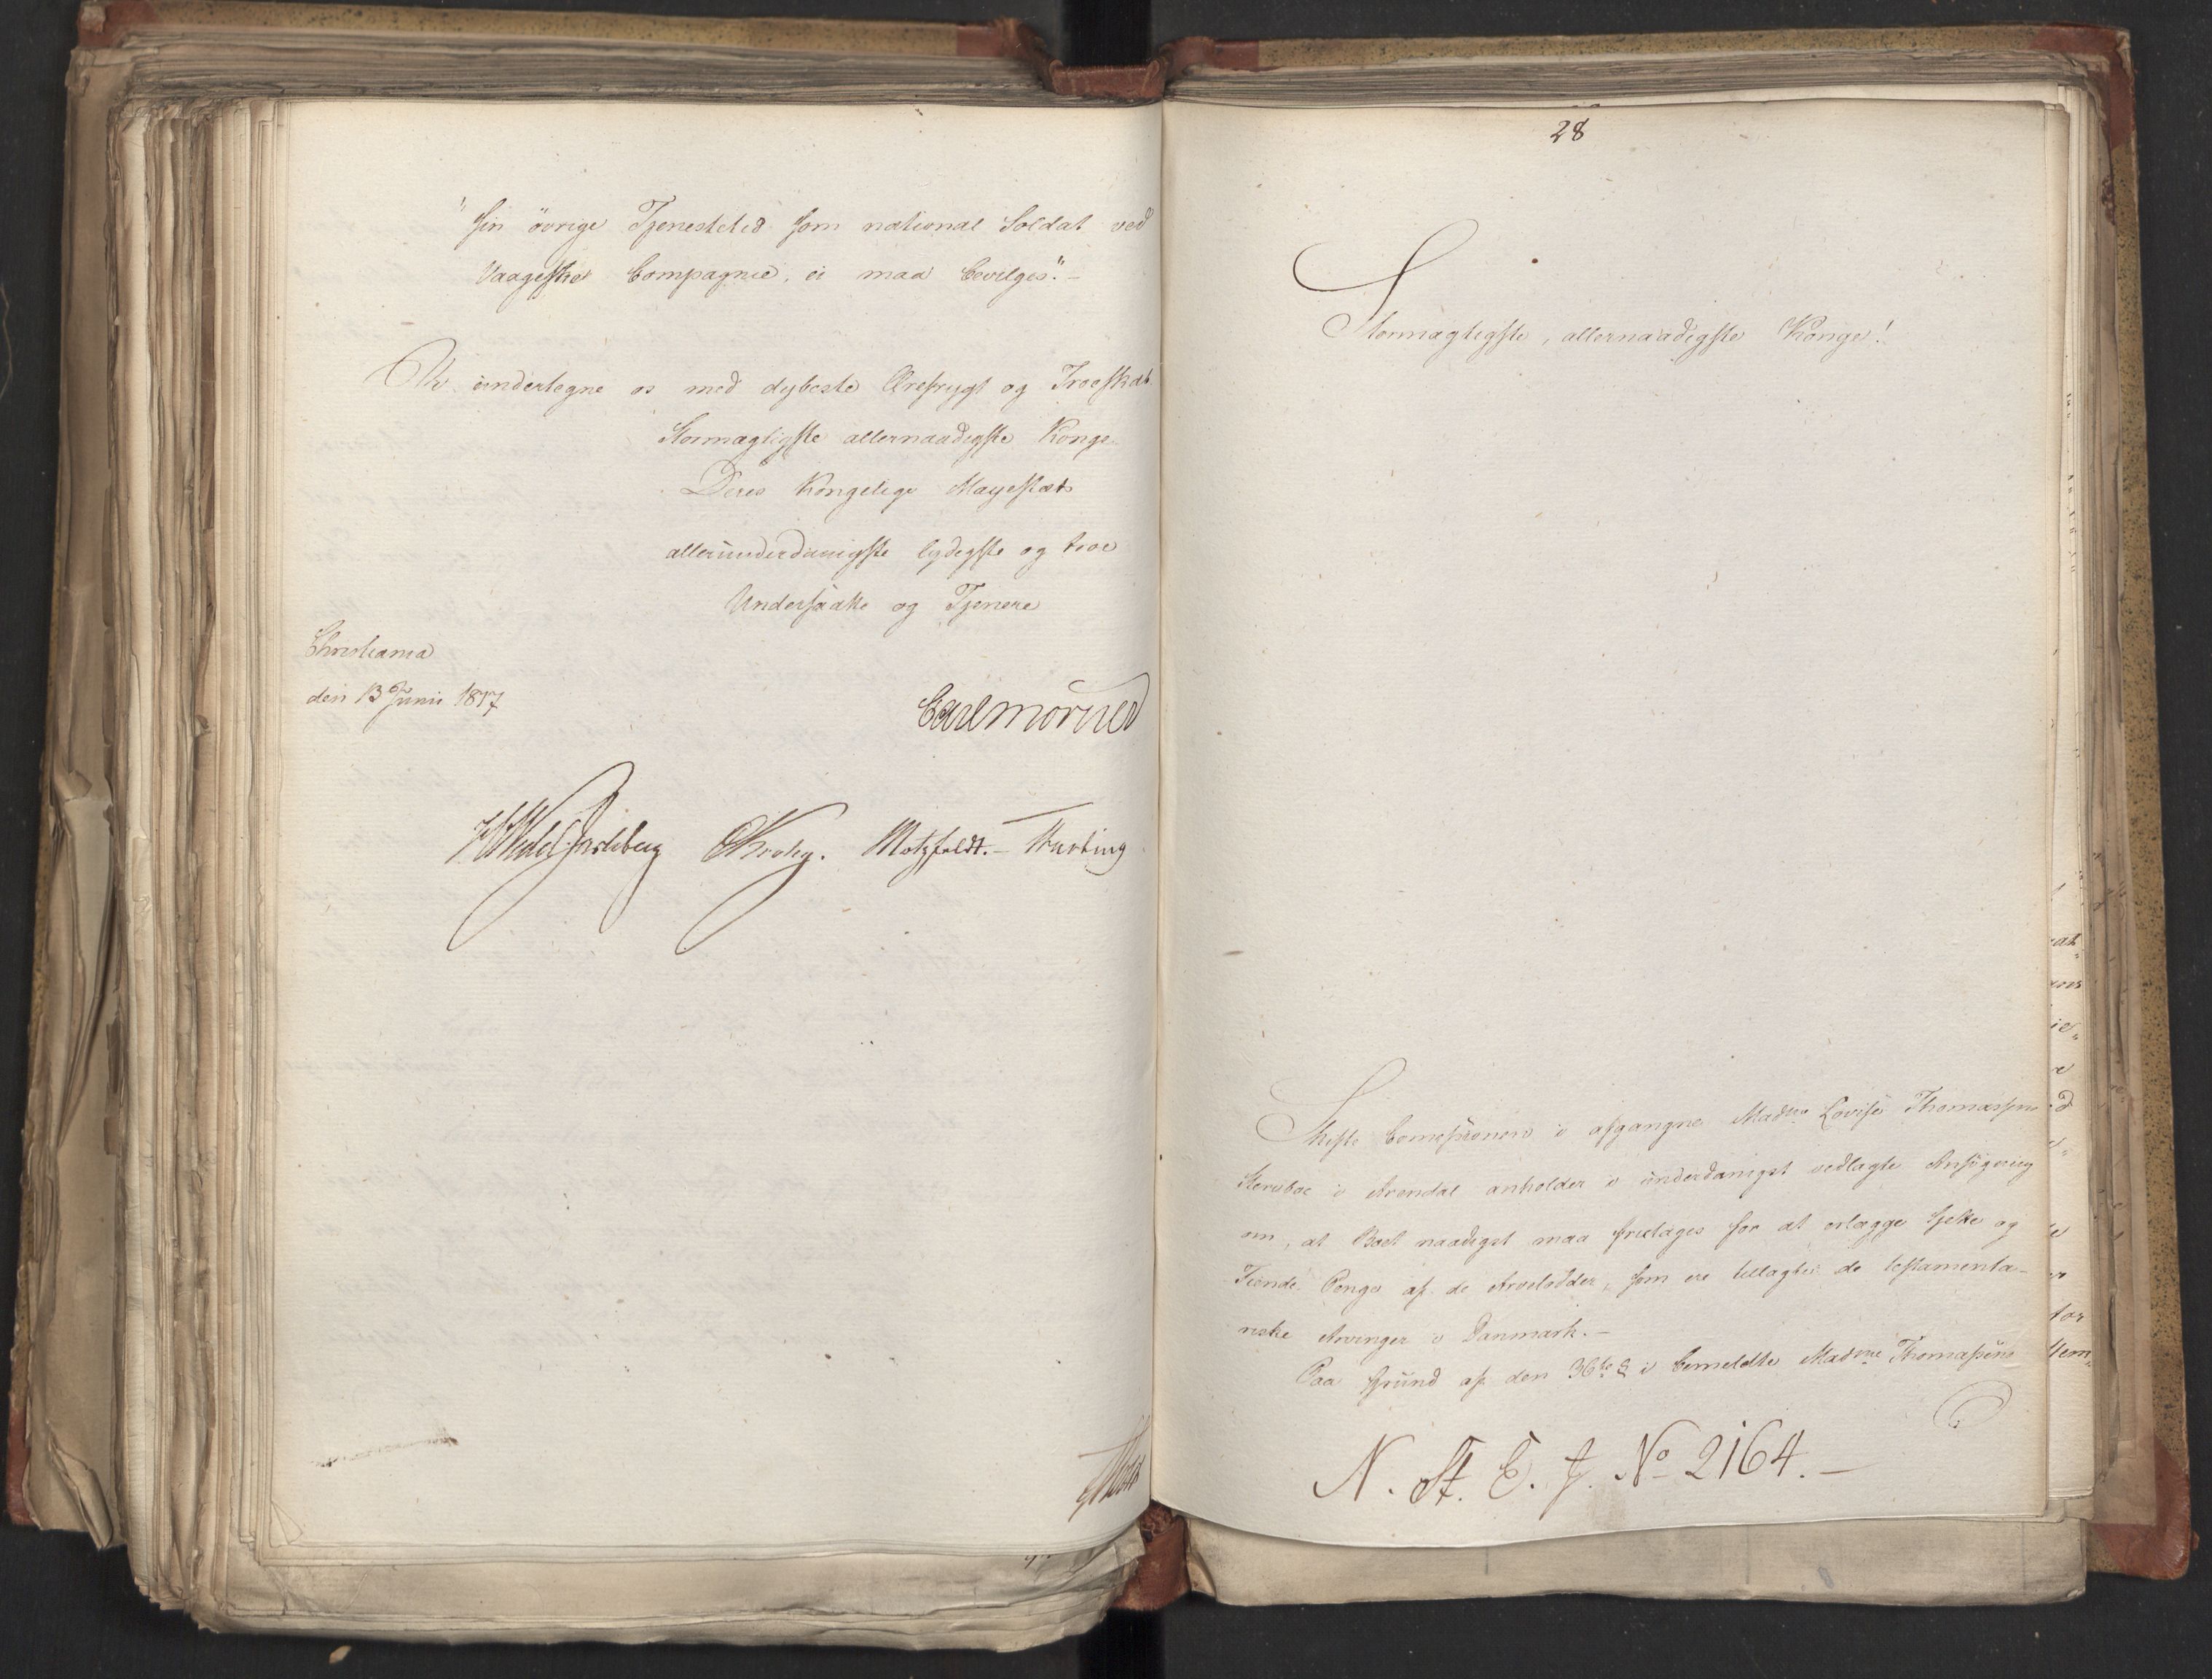 "sin övrige Tjenestetid som national Soldat ved
Vaageske Compagnie, ei maa bevilges". -
Vi undertegne os med dybeste Ærefrygt og Troeskab
Stormægtigste allernaadigste Konge
Deres Kongelige Mayestæts
allerunderdanigste lydigste og troe
Undersaatte og Tjenere
Christiania
den 13 Junii 1817
Carl Mörner
HWedel Jarlsberg Krohg. Motzfeldt. -
28
Stormægtigste, allernaadigste Konge!
Skifte Comissionen i afgangne Madme Lovise Thomassens
Sterveboe i Arendal anholder i underdanigst vedlagte Ansögning
om, at Boet naadigst maa fritages for at erlægge Sjette og
Tiende Penge af de Arvelodder, som ere tillagte de testamenta-
riske Arvinger i Danmark. -
Paa Grund af den 36te § i bemeldte Madme Thomassens
N. St. E. J. No 2164. -